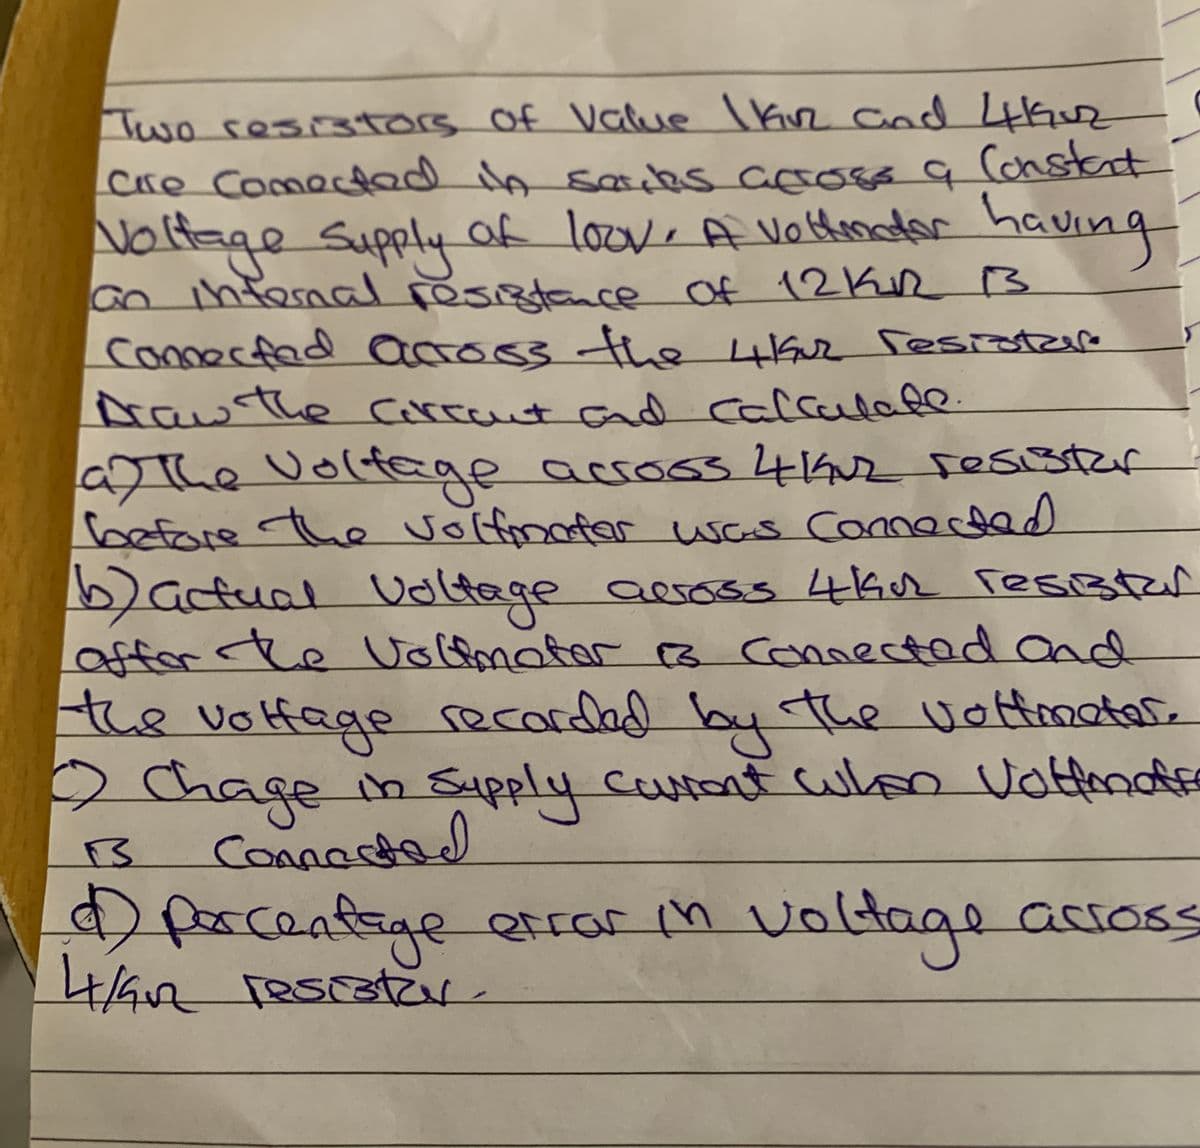 Two resistors of Value 1KΩ and 4KΩ
are Connected in series across a Constant
Voltage Supply of 100V. A Voltmeter having
an internal resistance of 12KΩ is
Connected across the 4KΩ resistor.
Draw the Circuit and Calculate.
a) The Voltage across 4KΩ resistor
before the voltmeter was Connected
b) actual Voltage across 4KΩ resistor
after the Voltmeter is Connected and
the voltage recorded by the voltmeter.
c) Chage in Supply Current when Voltmeter
is Connected
d) percentage error in voltage across
4KΩ resistor.